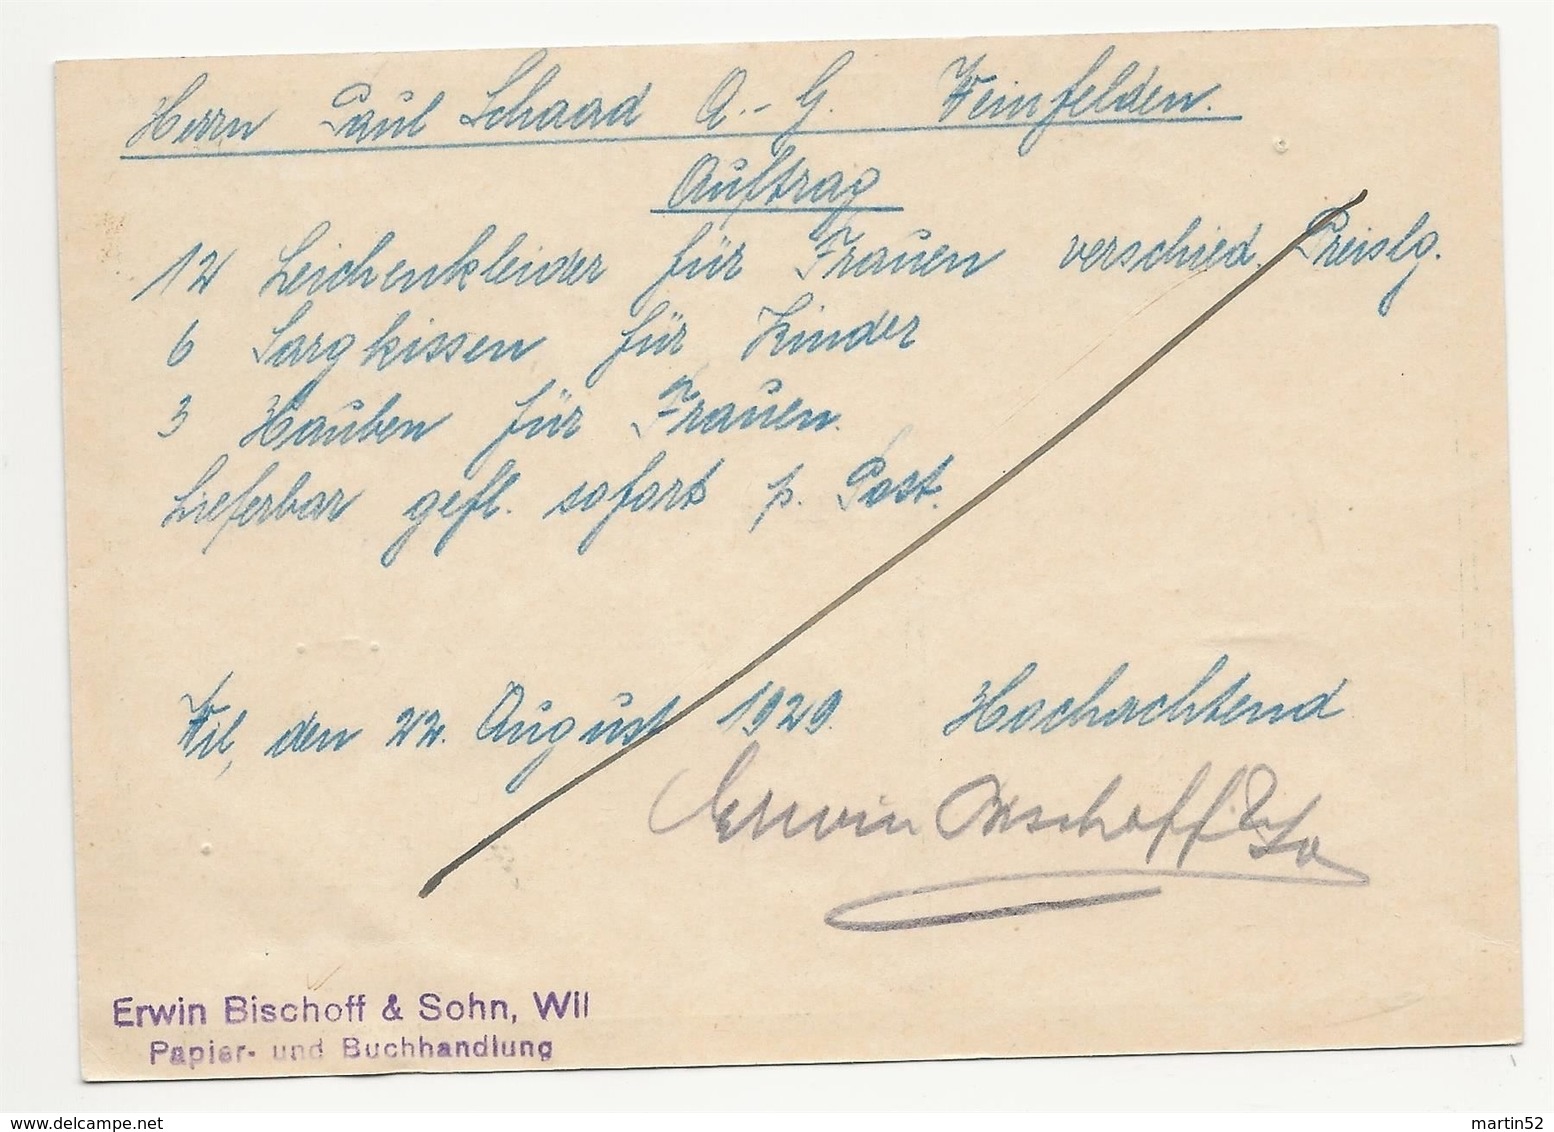 Herrn Paul Schaad A.-G. Weinfelden.
Auftrag
12 Leichenkleider für Frauen verschied. Preislg.
6 Sargkissen für Kinder
3 Hauben für Frauen.
Lieferbar gefl. sofort p. Post.
Wil, den 22. August 1929. Hochachtend
Erwin Bischoff & So
Erwin Bischoff & Sohn, Wil
Papier- und Buchhandlung
www.delcampe.net
martin52